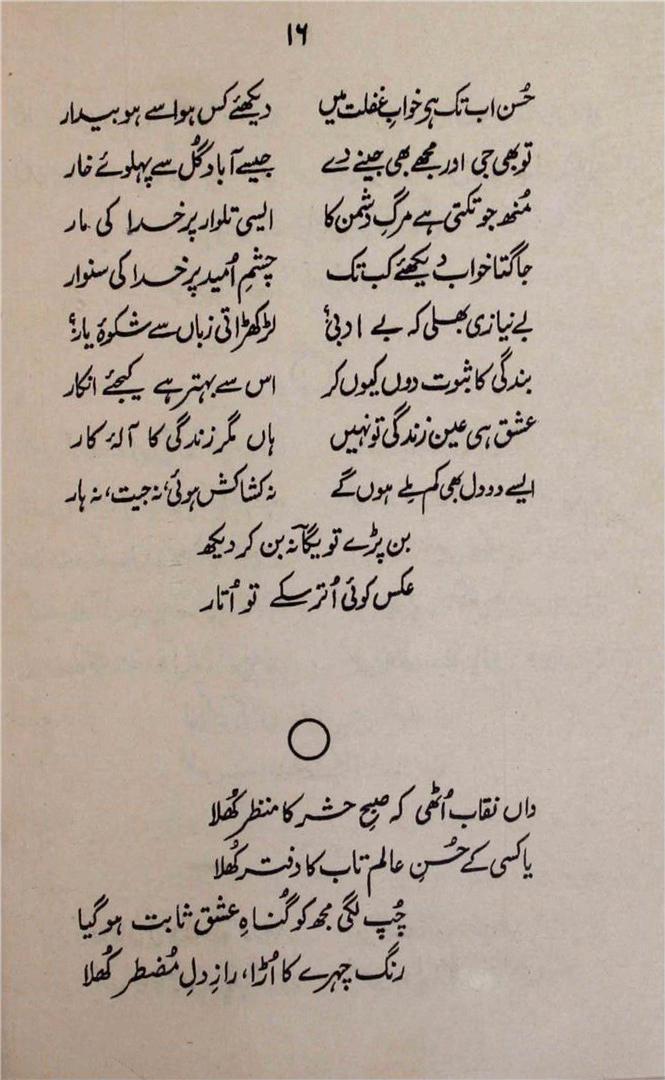 ۱۶
حُسن اب تک ہی خوابِ غفلت میں دیکھئے کس ہوا سے ہو بیدار
تو بھی جی اور مجھے بھی جینے دے جیسے آباد گُل سے پہلوئے خار
مُنھ جو تکتی ہے مرگِ دشمن کا ایسی تلوار پر خدا کی مار
جاگتا خواب دیکھئے کب تک چشمِ اُمید پر خدا کی سنوار
بے نیازی بھلی کہ بے ادبی؟ لڑکھڑاتی زباں سے شکوۂ یار؟
بندگی کا ثبوت دوں کیوں کر اس سے بہتر ہے کیجئے انکار
عشق ہی عین زندگی تو نہیں ہاں مگر زندگی کا آلۂ کار
ایسے دو دل بھی کم ملے ہوں گے نہ کشاکش ہوئی، نہ جیت، نہ ہار
بن پڑے تو یگاؔنہ بن کر دیکھ
عکس کوئی اُتر سکے تو اُتار
واں نقاب اُٹھی کہ صبحِ حشر کا منظر کھُلا
یا کسی کے حُسنِ عالم تاب کا دفتر کھُلا
چُپ لگی مجھ کو گُناہِ عشق ثابت ہو گیا
رنگ چہرے کا اُڑا، رازِ دلِ مُضطر کھُلا